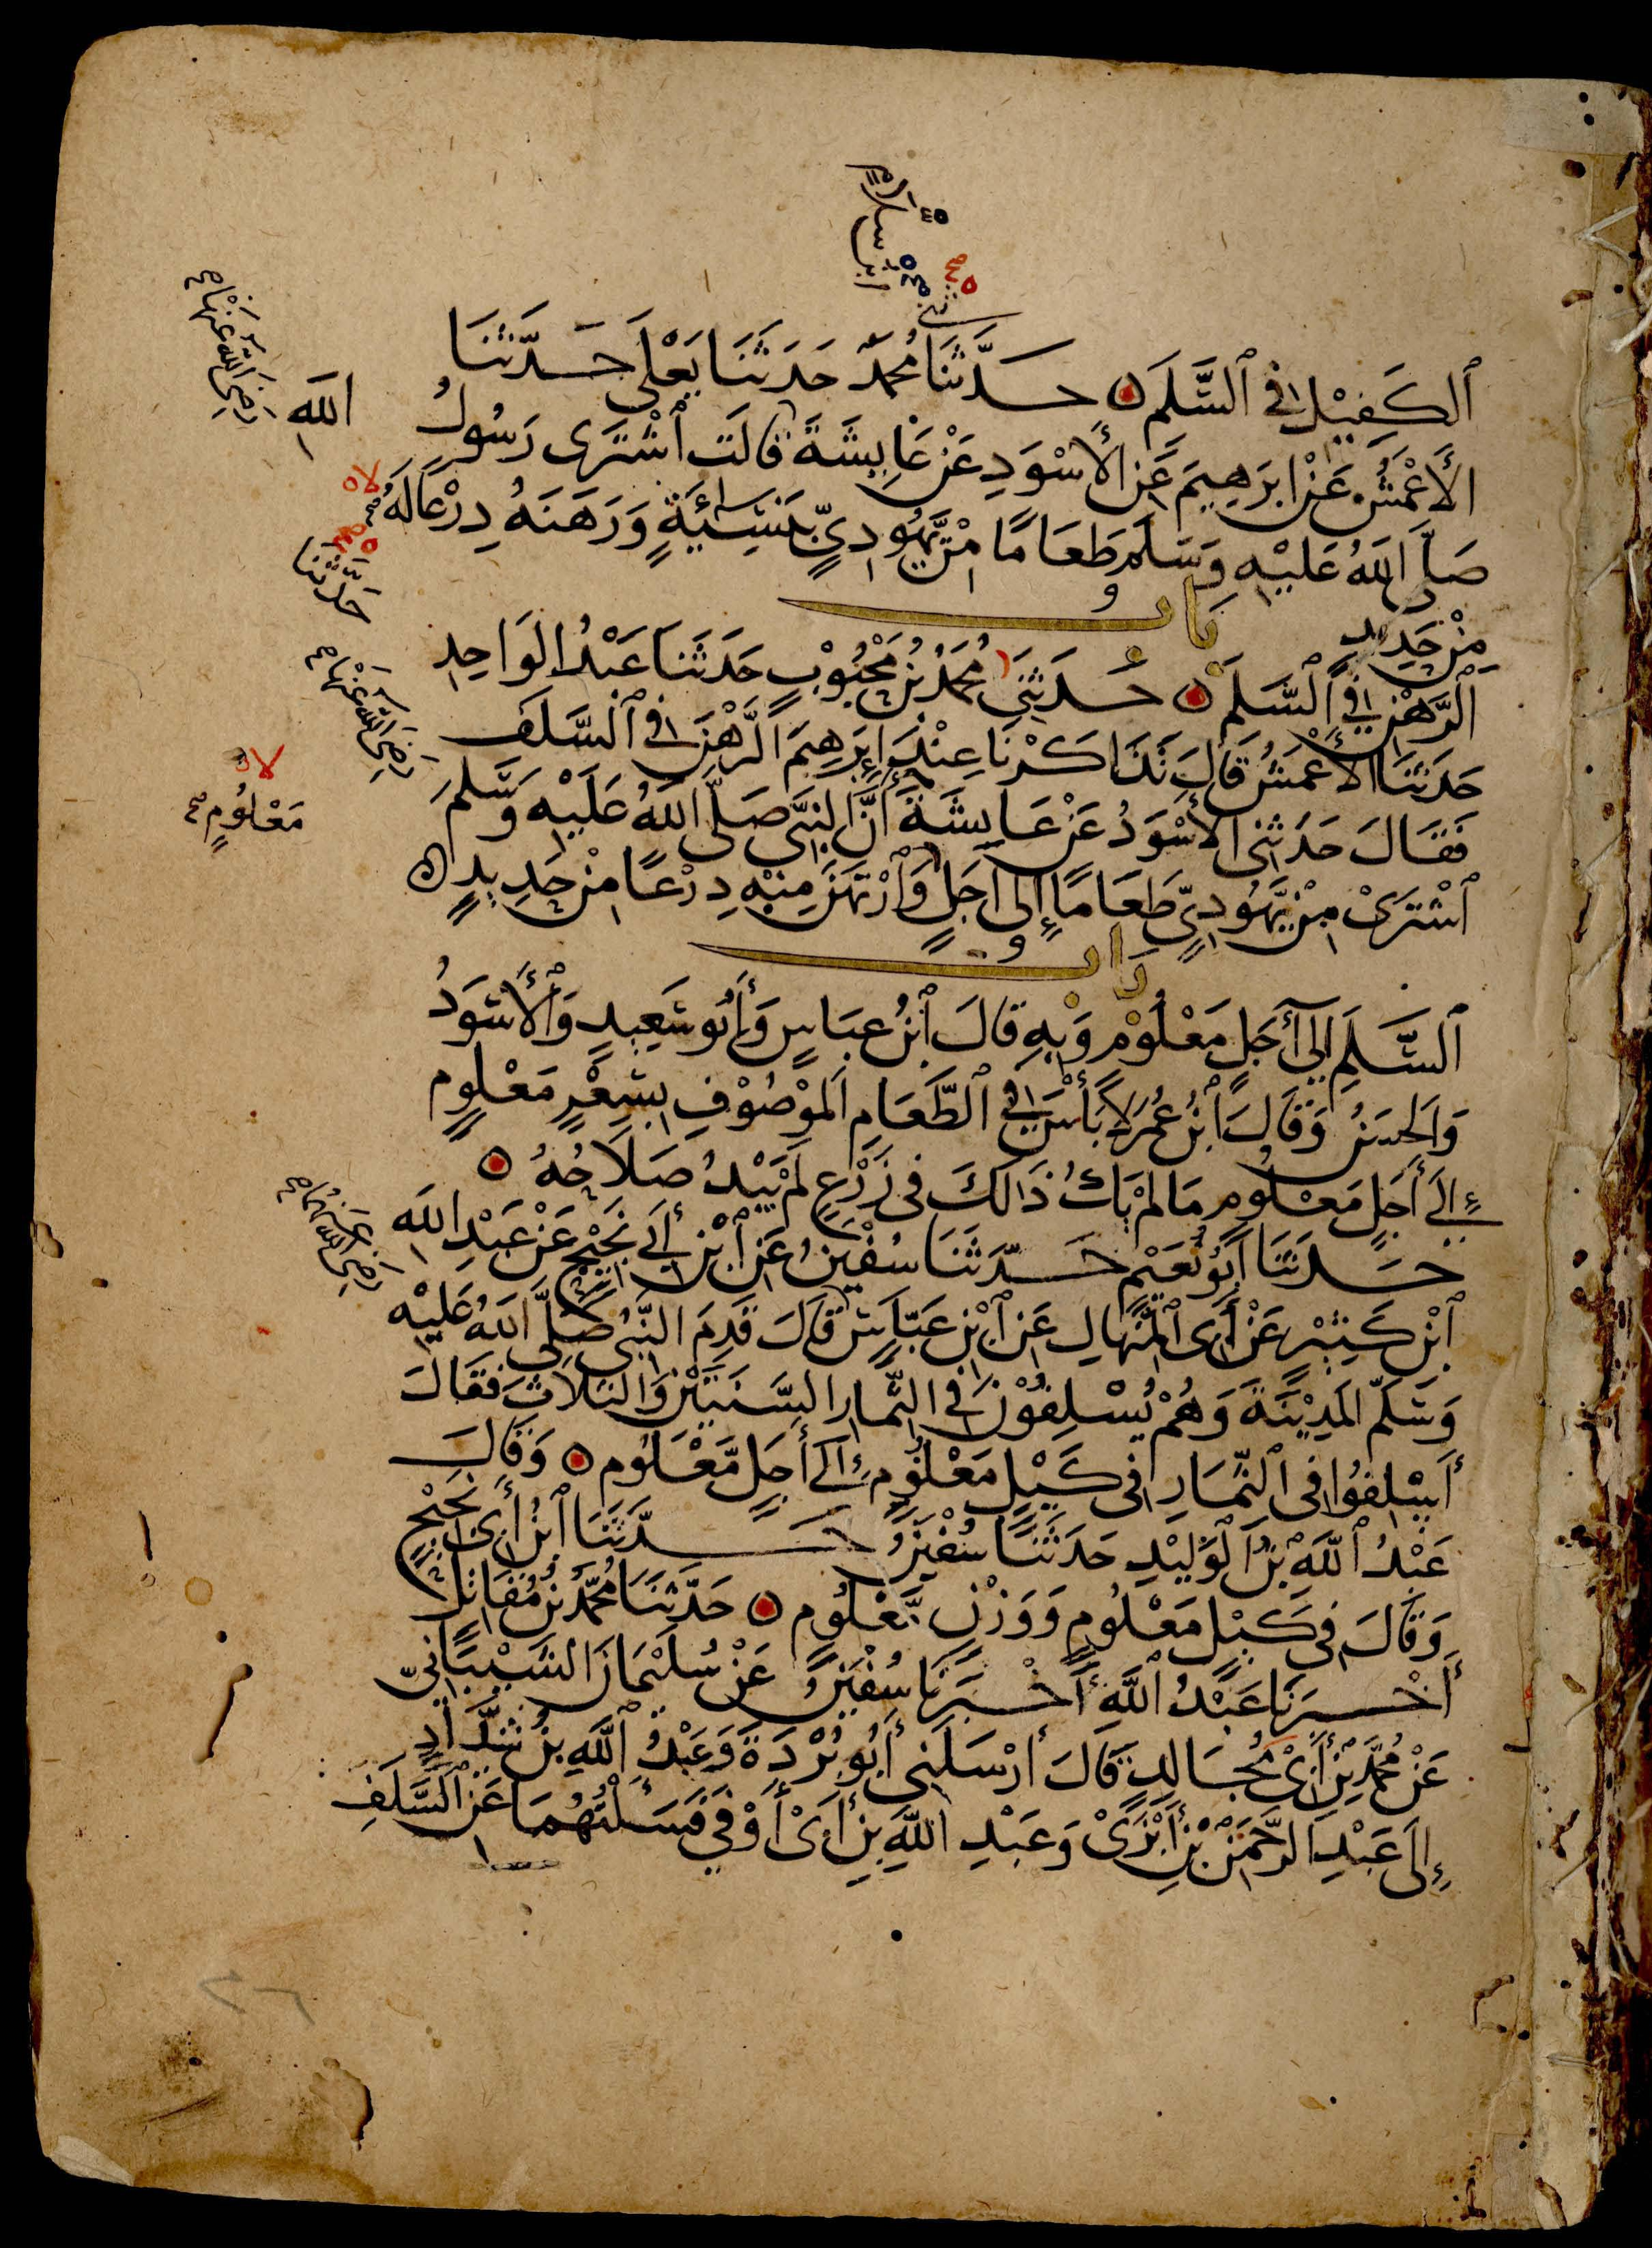 ٱلكَفِيْلِ فِى ٱلسَّلَمِ ۝ حَدَّثَنَا مُحَمَّدٌ حَدَثَنَا يَعْلَى حَدَّثَنَا
الأَعْمَشُ عَنْ ابرَهِيمَ عَنِ الأَسْوَدِ عَنْ عَايِشَةَ قالَت ٱشْتَرَى رَسُولُ الله
صَلَّى اللهُ عَليْهِ وَسَلَّم طَعَامًا مِنْ يَّهُودِىٍّ بِنَسِيئَةٍ وَرَهَنَهُ دِرْعًا لَهُ
مِنْ حَدِيدٍ
بَابُ
الرَّهْنِ فِى ٱلسَّلَمِ ۝ حَدَثَنِى مُحَمَّدُ بْنُ مَحْبُوْبٍ حَدَثَنَا عَبْدُ الوَاحِدِ
حَدَثَنَا الأَعْمَشُ قَالَ تَذَاكَرْنَا عِنْدَ اِبرَهِيمَ الرَّهْنَ فِى ٱلسَّلَفِ
فَقَالَ حَدَثَنِى الأَسْوَدُ عَنْ عَايِشَةَ أَنَّ النبىَّ صَلَّى اللهُ عَلَيْهِ وَسَلَّمَ
ٱشْتَرَىْ مِنْ يَّهُودِىٍّ طَعَامًا إِلى أَجَلٍ وَٱرْتَهَنَ مِنْهِ دِرْعًا مِنْ حَدِيدٍ ۝
بَابُ
ٱلسَّلَمِ اِلى أَجَلٍ مَعْلُوْمٍ وَبِهِ قَالَ ٱبْنُ عبَاسٍ وَأَبُو سَعِيدٍ وَٱلأَسْوَدُ
وَالحَسَنُ وَقَالَ ٱبْنُ عُمَرَ لَا بَأْسَ فِى ٱلطَّعَامِ المَوْصُوْفِ بِسِعْرٍ مَعْلُومٍ
إِلَى أَجَلٍ مَعْلُومٍ مَا لمْ يَكُ ذَالِكَ فى زَرْعٍ لَمْ يَبْدُ صَلَاحُهُ ۝
حَدَثَنَا أَبُو نُعَيْمٍ حَدَّثَنَا سُفْيٰنُ عَنِ ٱبْنِ أَبِى نَجِيْحٍ عَنْ عَبْدِ اللهِ
ٱبْنِ كَثِيْرٍ عَنْ أَبِى ٱلمِنْهَالِ عَنِ ٱبْنِ عَبَّاسٍ قَالَ قَدِمَ النَّبِىُّ صَلَّى اللهُ عَلَيْه
وَسَلَّمَ المَدِيْنَةَ وَهُمْ يُسْلِفُوْنَ فِى الثِّمَارِ السَّنَتَيْنِ وَالثَلَاثَ فَقَالَ
أَسْلِفُوا فِى ٱلثِّمَارِ فى كَيْلٍ مَعْلُوْمٍ إِلَى أَجَلٍ مَّعْلُومٍ ۝ وَقَالَ
عَبْدُ ٱللّٰهِ بْنُ ٱلوَلِيْدِ حَدَثَنَا سُفْيٰنُ حَدَّثَنَا ٱبْنُ أَبِى نَجِيْحٍ
وَقَالَ فِى كَيْلٍ مَعْلُومٍ وَوَزْنٍ مَّعْلُومٍ ۝ حَدَّثَنَا مُحَمَّدُ بْنُ مُقَاتِلٍ
أَخْبَرَنَا عَبْدُ ٱللّٰهِ أَخْبَرَنَا سُفْيٰنُ عَنْ سُلَيْمَانَ الشَّيْبَانِىِّ
عَنْ مُحَمَّدِ بْنِ أَبِىْ مُجَالِدٍ قَالَ أَرْسَلَنِى أَبُو بُرْدَةَ وَعَبْدُ ٱللّٰهِ بْنُ شَدَّادٍ
إِلَى عَبْدِ الرَّحْمٰنِ بْنِ أَبْزَىْ وَعَبْدِ اللّٰهِ بنِ أَبِىْ أَوْفَى فَسَأَلْتُهُمَا عَنِ ٱلسَّلَفِ
رَضِىَ اللهُ عَنْهَا
حَدَّثَنَا
رَضِىَ اللهُ عَنْهَا
مَعْلُومٍ
رَضِىَ اللهُ عَنْهُمَا